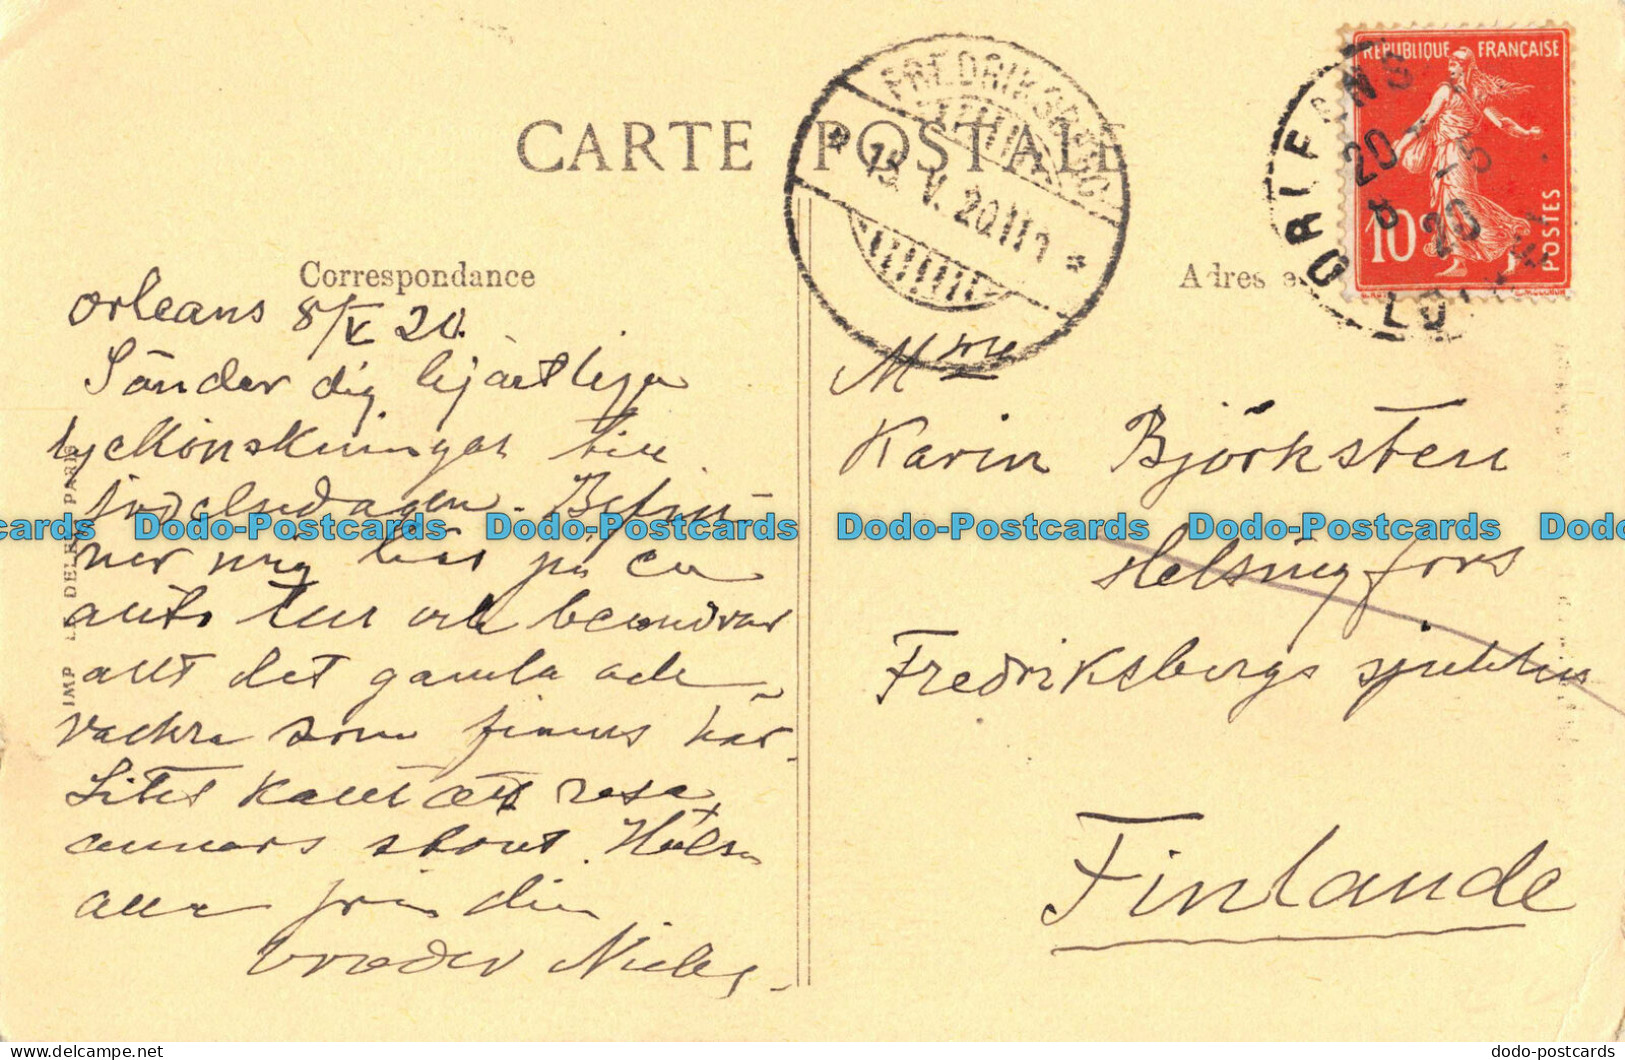 CARTE POSTALE
Correspondance
Adres e
REPUBLIQUE FRANÇAISE
10
POSTES
ORLEANS
20
8 -5
20
LOIRET
FREDRIKSBERG
15. V. 20
IMP. DELEY PARIS
Orleans 8/V 20.
Sänder dig hjärtliga
lyckönskningar till
födelsedagen. Befin-
ner mig här på en
auto tur och beundrar
allt det gamla och
vackra som finnes här.
Litet kallt att resa
annars skönt. Hälsa
alla från din
broder Niels.
Mme
Karin Björksten
Helsingfors
Fredriksbergs
Finlande
Dodo-Postcards Dodo-Postcards Dodo-Postcards Dodo-Postcards
dodo-postcards